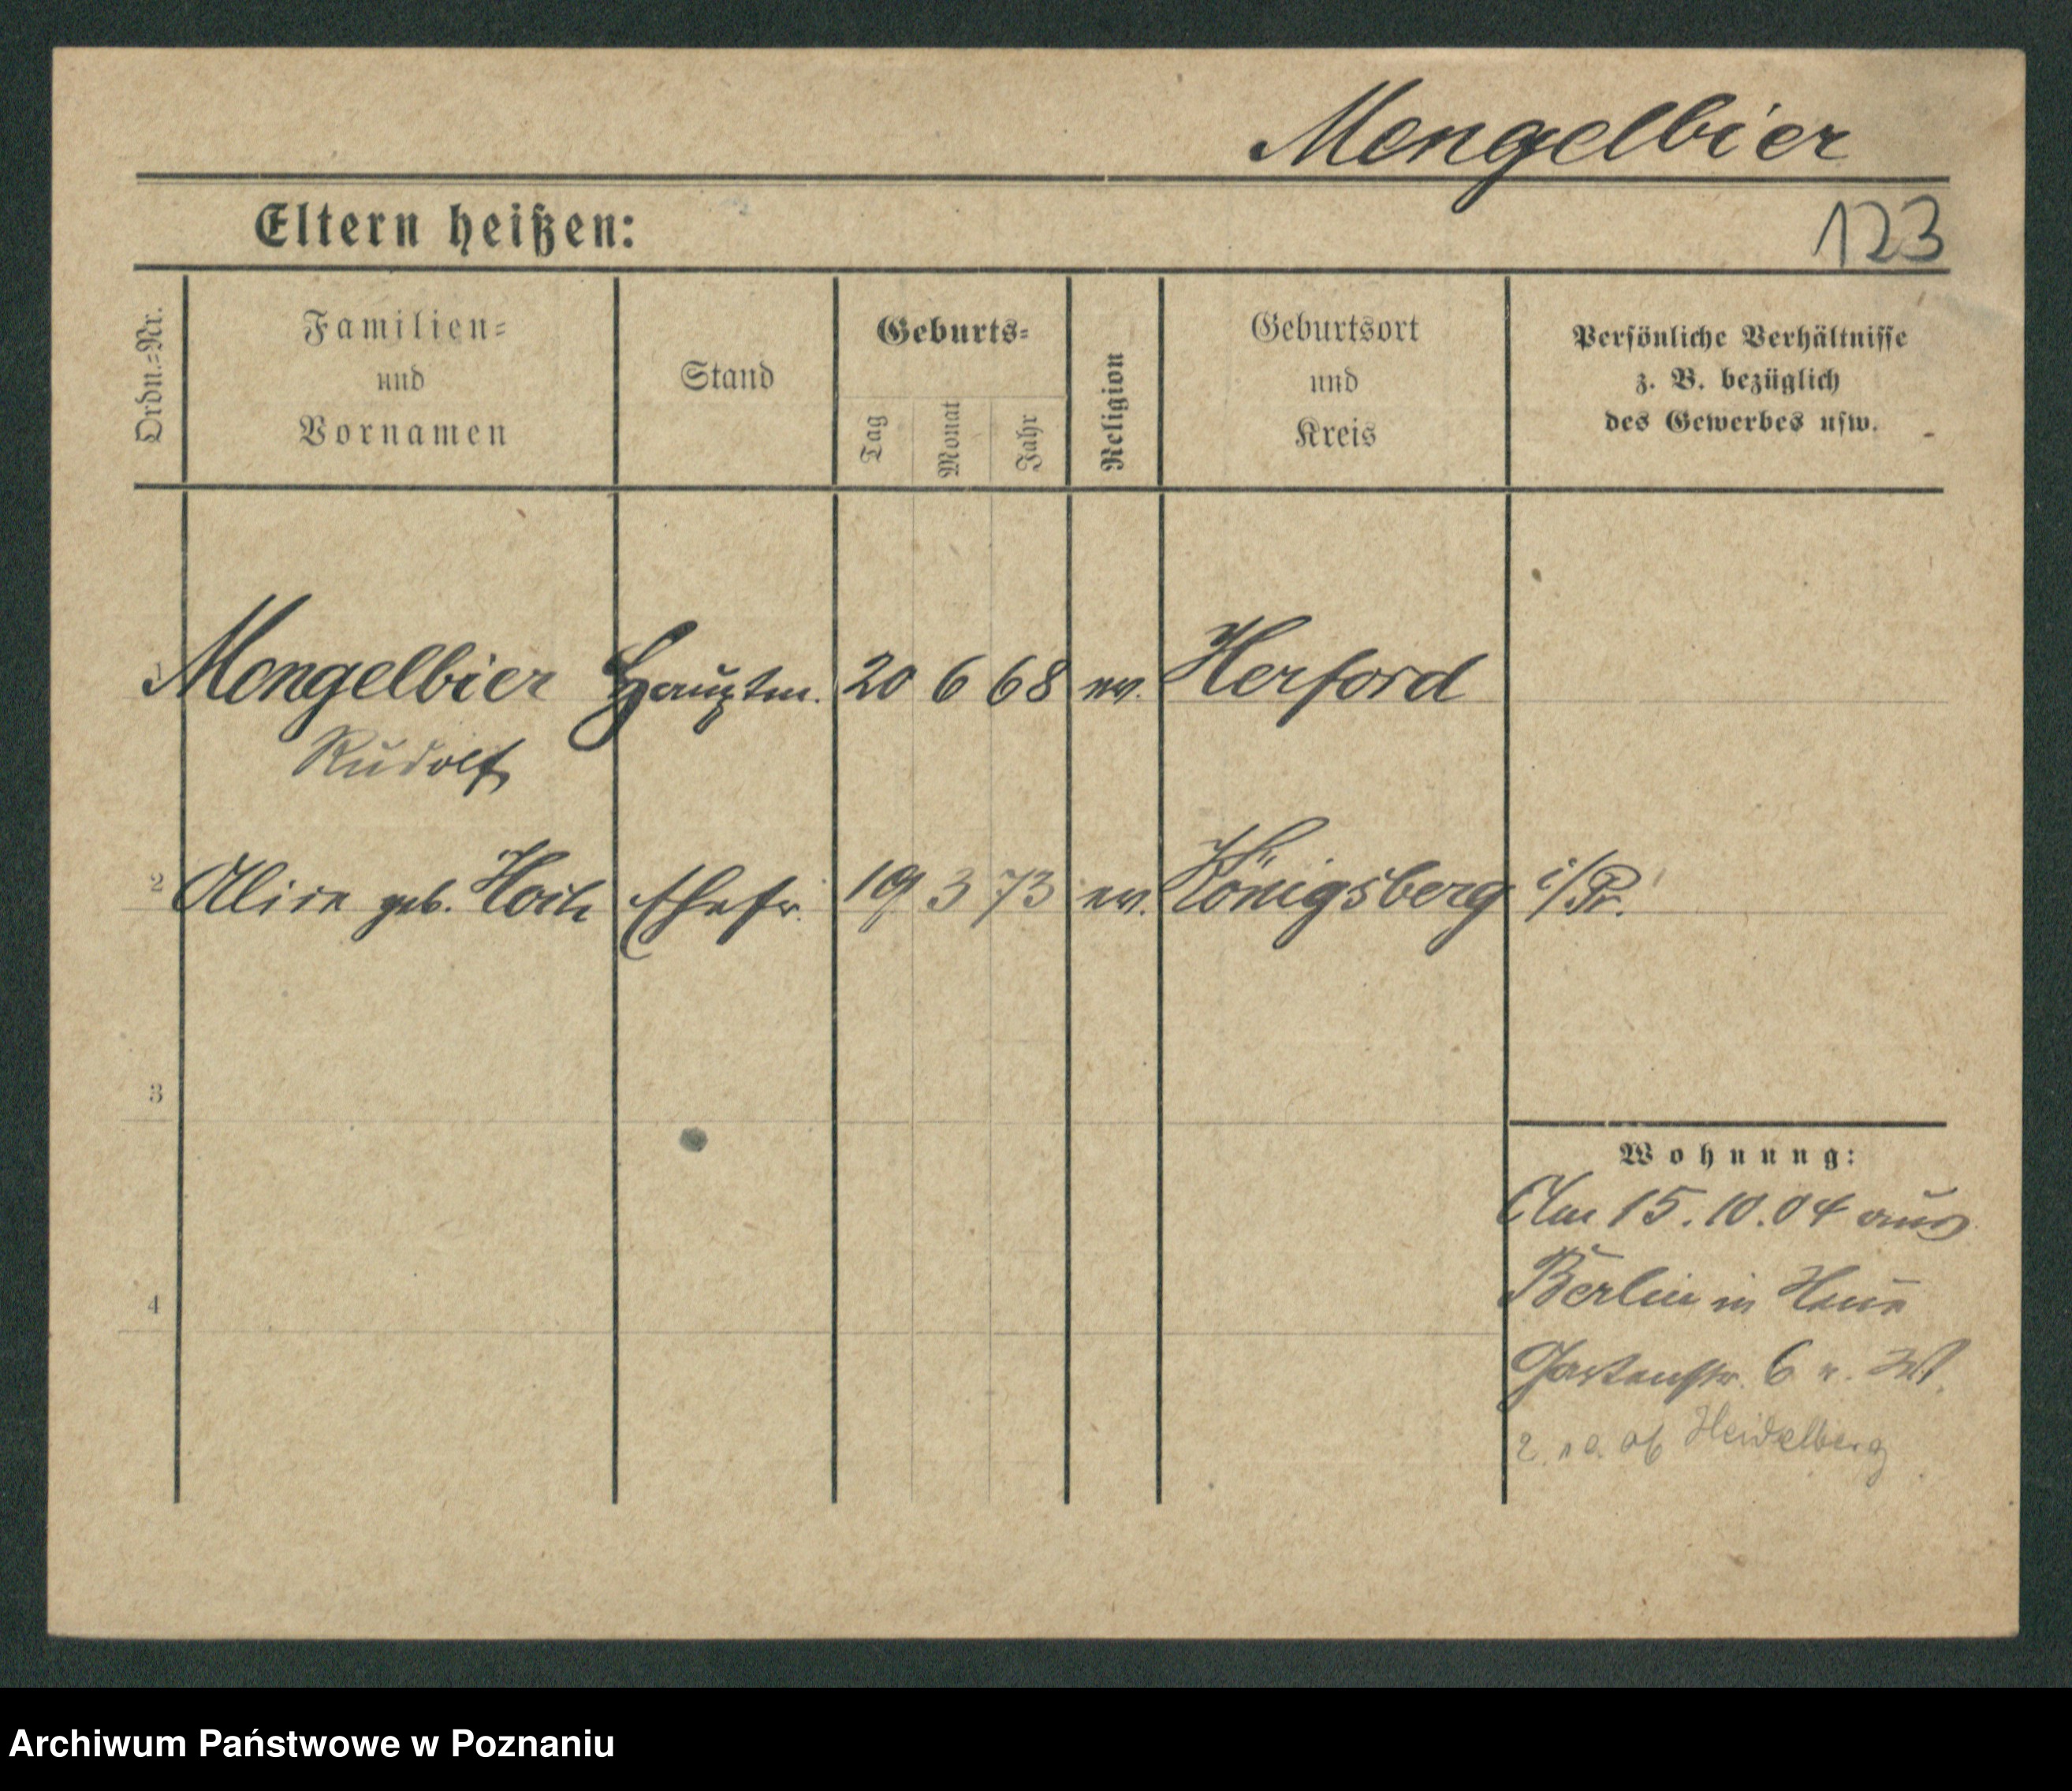 Mengelbier
Eltern heißen:
123
Ordn.=Nr.
Familien=
und
Vornamen
Stand
Geburts=
Tag
Monat
Jahr
Religion
Geburtsort
und
Kreis
Persönliche Verhältnisse
z. B. bezüglich
des Gewerbes usw.
1 Mengelbier Hauptm. 20 6 68 ev. Herford
Rudolf
2 Alice geb. Ehefr. 19 3 73 ev. Königsberg i/Pr.
3
Wohnung:
Am 15.10.04 aus
Berlin in
4
Gartenstr. 6
ab Heidelberg
Archiwum Państwowe w Poznaniu